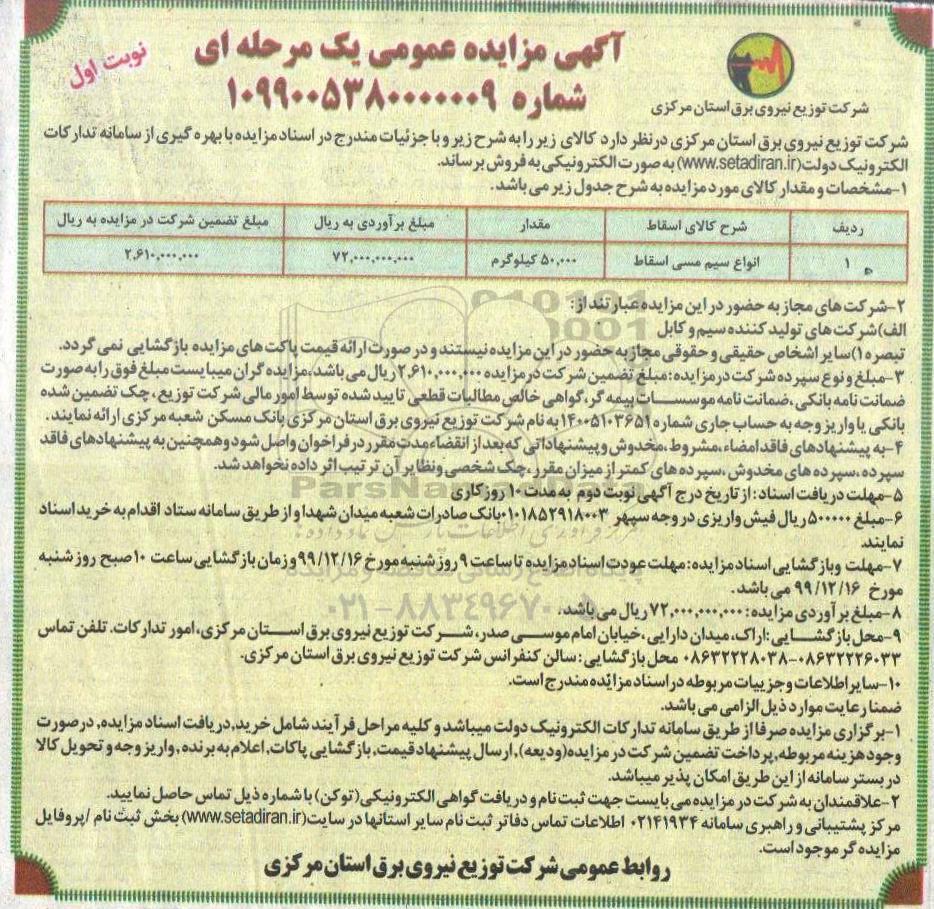 آگهی مزایده عمومی یک مرحله ای
نوبت اول
شماره ۱۰۹۹۰۰۵۳۸۰۰۰۰۰۰۹
شرکت توزیع نیروی برق استان مرکزی
شرکت توزیع نیروی برق استان مرکزی درنظر دارد کالای زیر را به شرح زیر و با جزئیات مندرج در اسناد مزایده با بهره گیری از سامانه تدارکات
الکترونیک دولت(www.setadiran.ir) به صورت الکترونیکی به فروش برساند.
۱-مشخصات و مقدار کالای مورد مزایده به شرح جدول زیر می باشد.
ردیف شرح کالای اسقاط مقدار مبلغ برآوردی به ریال مبلغ تضمین شرکت در مزایده به ریال
۱ انواع سیم مسی اسقاط ۵۰,۰۰۰ کیلوگرم ۷۲,۰۰۰,۰۰۰,۰۰۰ ۲,۶۱۰,۰۰۰,۰۰۰
۲-شرکت های مجاز به حضور در این مزایده عبارتند از:
الف)شرکت های تولید کننده سیم و کابل
تبصره ۱)سایر اشخاص حقیقی و حقوقی مجاز به حضور در این مزایده نیستند و در صورت ارائه قیمت پاکت های مزایده بازگشایی نمی گردد.
۳-مبلغ و نوع سپرده شرکت در مزایده: مبلغ تضمین شرکت در مزایده ۲,۶۱۰,۰۰۰,۰۰۰ ریال می باشد،مزایده گران میبایست مبلغ فوق را به صورت
ضمانت نامه بانکی ،ضمانت نامه موسسات بیمه گر،گواهی خالص مطالبات قطعی تایید شده توسط امور مالی شرکت توزیع ، چک تضمین شده
بانکی یا واریز وجه به حساب جاری شماره ۱۴۰۰۵۱۰۳۶۵۱ به نام شرکت توزیع نیروی برق استان مرکزی بانک مسکن شعبه مرکزی ارائه نمایند.
۴-به پیشنهادهای فاقد امضاء،مشروط،مخدوش و پیشنهاداتی که بعد از انقضاءمدت مقرر در فراخوان واصل شود و همچنین به پیشنهادهای فاقد
سپرده،سپرده های مخدوش ،سپرده های کمتر از میزان مقرر ،چک شخصی و نظایر آن ترتیب اثر داده نخواهد شد.
۵-مهلت دریافت اسناد: از تاریخ درج آگهی نوبت دوم به مدت ۱۰ روز کاری
۶-مبلغ ۵۰۰۰۰۰ ریال فیش واریزی در وجه سپهر ۰۱۰۱۸۵۲۹۱۸۰۰۳ بانک صادرات شعبه میدان شهدا و از طریق سامانه ستاد اقدام به خرید اسناد
نمایند.
۷-مهلت وبازگشایی اسناد مزایده: مهلت عودت اسناد مزایده تا ساعت ۹ روز شنبه مورخ ۹۹/۱۲/۱۶ و زمان بازگشایی ساعت ۱۰ صبح روز شنبه
مورخ ۹۹/۱۲/۱۶ می باشد.
۸-مبلغ برآوردی مزایده: ۷۲,۰۰۰,۰۰۰,۰۰۰ ریال می باشد.
۹-محل بازگشایی :اراک،میدان دارایی،خیابان امام موسی صدر، شرکت توزیع نیروی برق استان مرکزی، امور تدارکات. تلفن تماس
۰۸۶۳۲۲۲۶۰۳۳-۰۸۶۳۲۲۲۸۰۳۸ محل بازگشایی: سالن کنفرانس شرکت توزیع نیروی برق استان مرکزی.
۱۰-سایر اطلاعات و جزییات مربوطه در اسناد مزایده مندرج است.
ضمنا رعایت موارد ذیل الزامی می باشد.
۱-برگزاری مزایده صرفا از طریق سامانه تدارکات الکترونیک دولت میباشد و کلیه مراحل فرآیند شامل خرید,دریافت اسناد مزایده, درصورت
وجود هزینه مربوطه,پرداخت تضمین شرکت در مزایده(ودیعه),ارسال پیشنهاد قیمت, بازگشایی پاکات,اعلام به برنده ,واریز وجه و تحویل کالا
در بستر سامانه از این طریق امکان پذیر میباشد.
۲-علاقمندان به شرکت در مزایده می بایست جهت ثبت نام و دریافت گواهی الکترونیکی (توکن) با شماره ذیل تماس حاصل نمایید.
مرکز پشتیبانی و راهبری سامانه ۰۲۱۴۱۹۳۴ اطلاعات تماس دفاتر ثبت نام سایر استانها در سایت(www.setadiran.ir) بخش ثبت نام /پروفایل
مزایده گر موجود است.
روابط عمومی شرکت توزیع نیروی برق استان مرکزی
ParsNamadData
۰۲۱-۸۸۳۴۹۶۷۰-۵